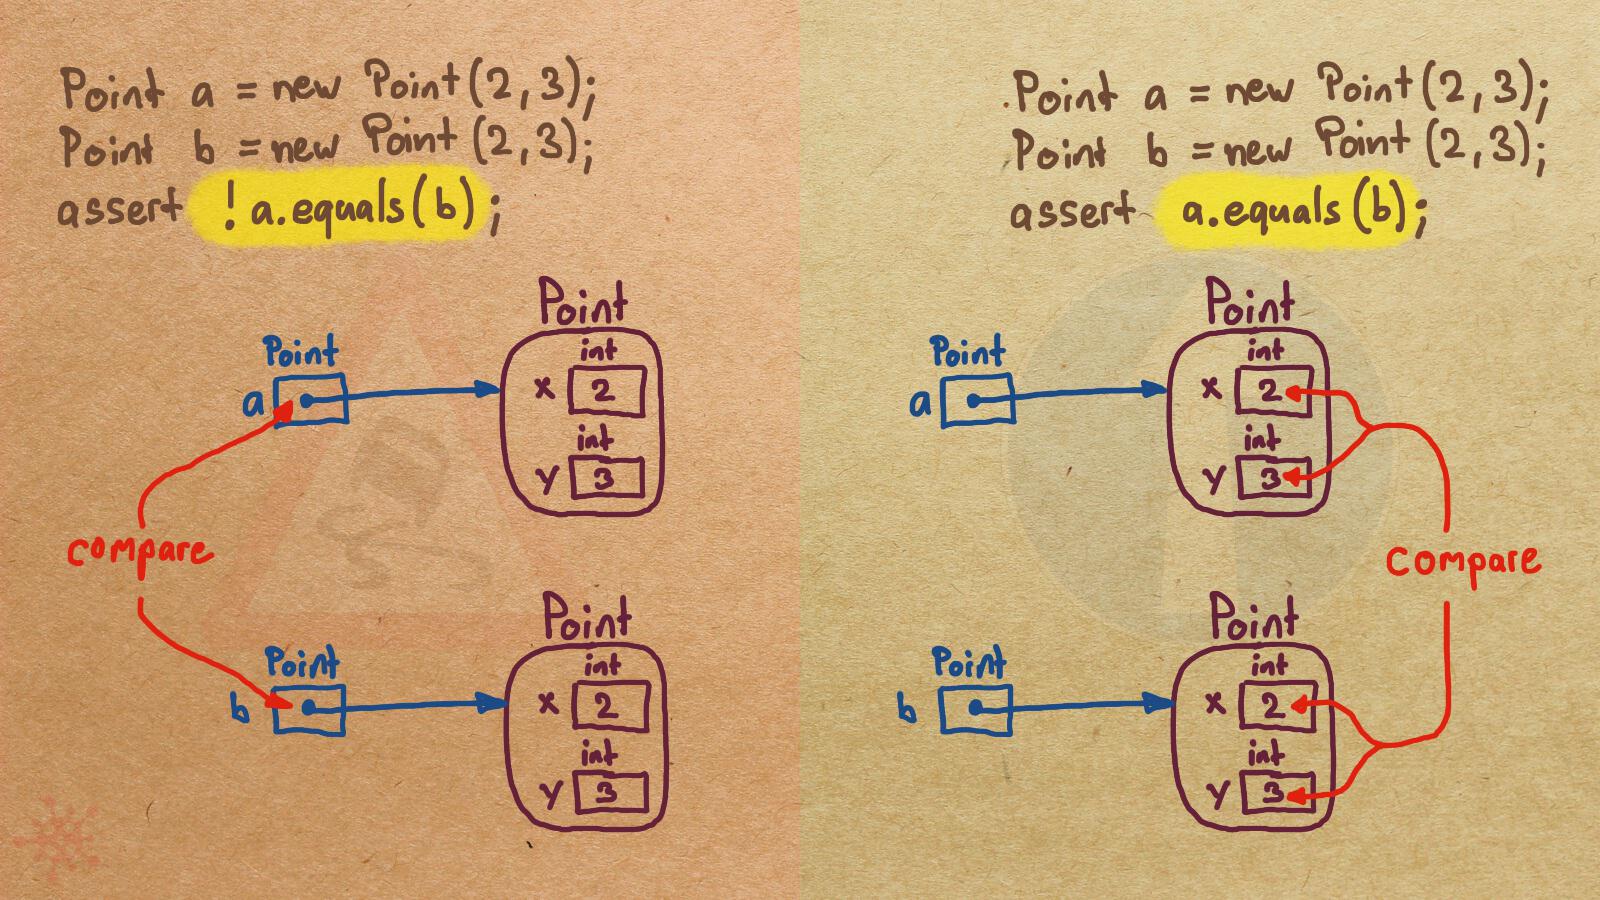 Point a = new Point(2, 3);
Point b = new Point(2, 3);
assert !a.equals(b);
Point
int
Point
a
x 2
int
y 3
compare
Point
int
Point
b
x 2
int
y 3
Point a = new Point(2, 3);
Point b = new Point(2, 3);
assert a.equals(b);
Point
int
Point
a
x 2
int
y 3
compare
Point
int
Point
b
x 2
int
y 3